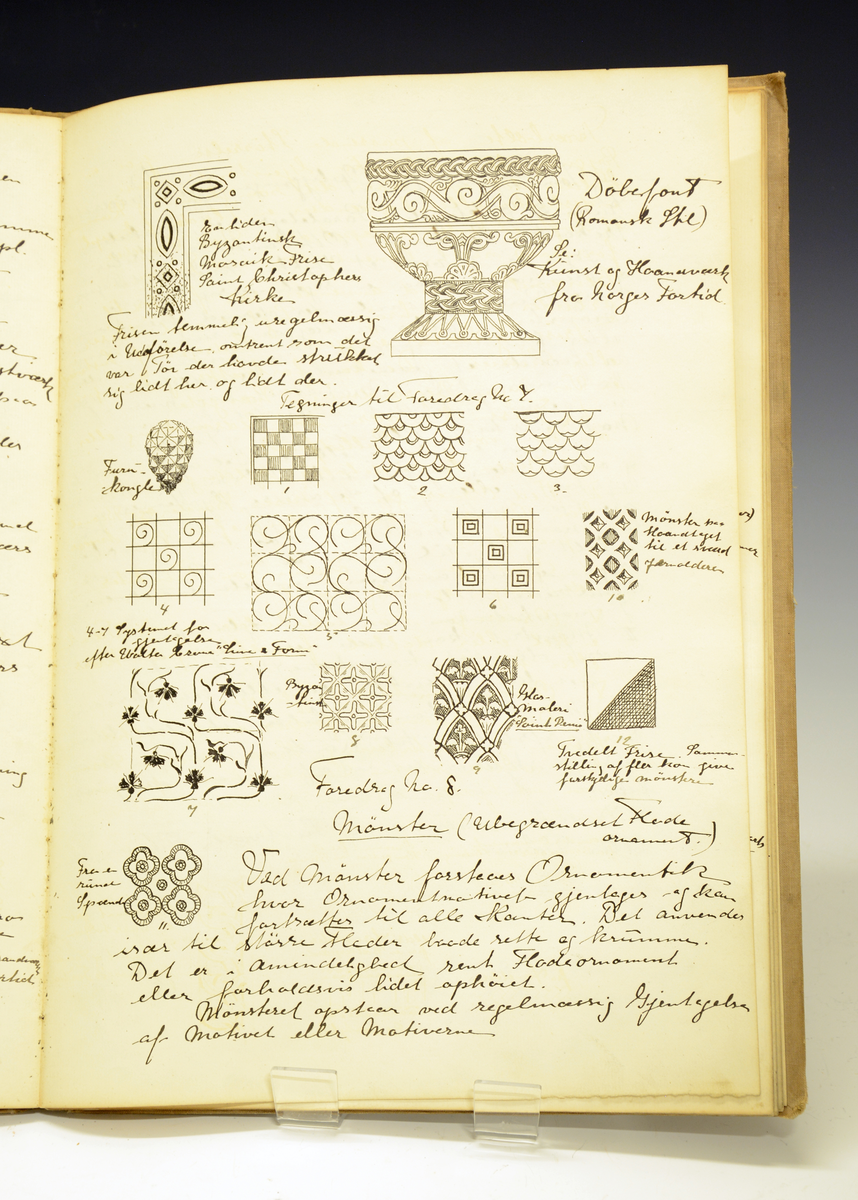 Byzantinsk
Mosaik Frise
Saint Christophers
Kirke
Frisen temmelig uregelmæssig
i Udførelse, omtrent som det
var Tøi der havde strukket
sig lidt her og lidt der.
Döbefont
(Romansk Stil)
Se:
Kunst og Haandværk
fra Norges Fortid
Tegninger til Foredrag No 8.
Furu-
kongle
1
2
3.
4
5
6
10
Mönster paa
Haandtaget
til et Sværd
Jernalderen
4-7 Systemet for
gjentagelse
efter Walter Crane "Line & Form"
7
Byzan-
tinsk
8
9
Glas-
maleri
"Saint Denis"
12
Tredelt Frise. Sammen-
stilling af fler kan give
forskjellige mönstere
Foredrag No. 8.
Mönster (Ubegrændset Flade
ornament.)
Fra en
rund
Spænde
11.
Ved Mönster forstaaes Ornamentik
hvor Ornamentmotivet gjentages og kan
fortsættes til alle Kanter. Det anvendes
især til större Flader baade rette og krumme.
Det er i Almindelighed rent Fladeornament
eller forholdsvis lidet ophöiet.
Mönsteret opstaar ved regelmæssig Gjentagelse
af Motivet eller Motiverne